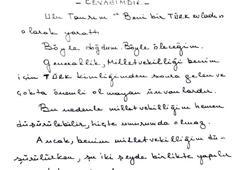 - CEVABIMDIR -
Ulu Tanrım - Beni bir TÜRK evladı
olarak yarattı
Böyle doğdum. Böyle öleceğim.
Generallik, Milletvekilliği benim
için TÜRK kimliğinden sonra gelen ve
çokta önemli olmayan ünvanlardır.
Bu nedenle milletvekilliğim hemen
düşürülebilir, hiçte umurumda olmaz.
Ancak, benim milletvekilliğim dü-
şürülürken, şu iki şeyde birlikte yapılır